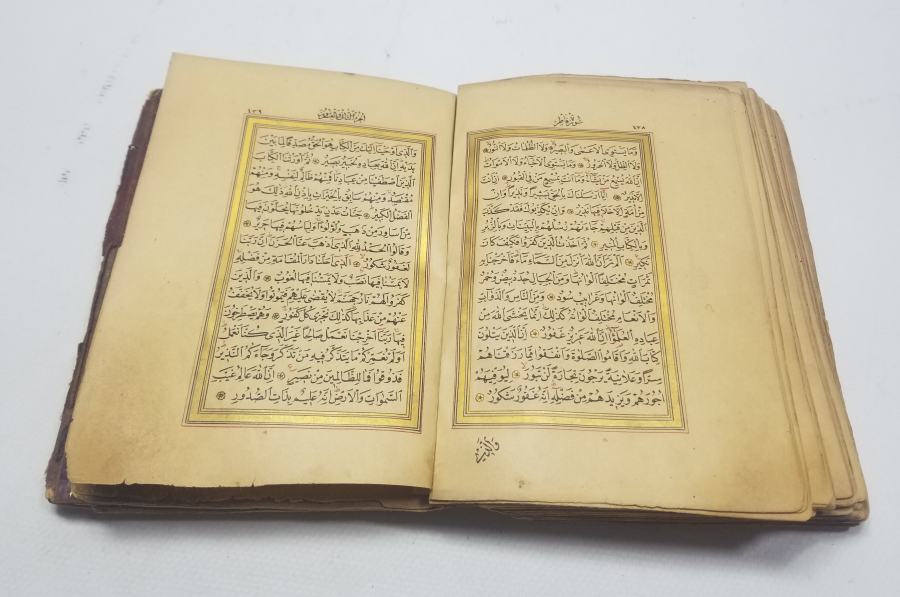 سورة فاطر
٤٣٨
وَمَا يَسْتَوِي الْاَعْمٰى وَالْبَصِيرُ وَلَا الظُّلُمَاتُ وَلَا النُّورُ
وَلَا الظِّلُّ وَلَا الْحَرُورُ وَمَا يَسْتَوِي الْاَحْيَاءُ وَلَا الْاَمْوَاتُ
اِنَّ اللّٰهَ يُسْمِعُ مَنْ يَشَاءُ وَمَا اَنْتَ بِمُسْمِعٍ مَنْ فِي الْقُبُورِ اِنْ اَنْتَ
اِلَّا نَذِيرٌ اِنَّا اَرْسَلْنَاكَ بِالْحَقِّ بَشِيرًا وَنَذِيرًا وَاِنْ
مِنْ اُمَّةٍ اِلَّا خَلَا فِيهَا نَذِيرٌ وَاِنْ يُكَذِّبُوكَ فَقَدْ كَذَّبَ
الَّذِينَ مِنْ قَبْلِهِمْ جَاءَتْهُمْ رُسُلُهُمْ بِالْبَيِّنَاتِ وَبِالزُّبُرِ
وَبِالْكِتَابِ الْمُنِيرِ ثُمَّ اَخَذْتُ الَّذِينَ كَفَرُوا فَكَيْفَ كَانَ
نَكِيرِ اَلَمْ تَرَ اَنَّ اللّٰهَ اَنْزَلَ مِنَ السَّمَاءِ مَاءً فَاَخْرَجْنَا بِهِ
ثَمَرَاتٍ مُخْتَلِفًا اَلْوَانُهَا وَمِنَ الْجِبَالِ جُدَدٌ بِيضٌ وَحُمْرٌ
مُخْتَلِفٌ اَلْوَانُهَا وَغَرَابِيبُ سُودٌ وَمِنَ النَّاسِ وَالدَّوَابِّ
وَالْاَنْعَامِ مُخْتَلِفٌ اَلْوَانُهُ كَذٰلِكَ اِنَّمَا يَخْشَى اللّٰهَ مِنْ
عِبَادِهِ الْعُلَمٰؤُا اِنَّ اللّٰهَ عَزِيزٌ غَفُورٌ اِنَّ الَّذِينَ يَتْلُونَ
كِتَابَ اللّٰهِ وَاَقَامُوا الصَّلٰوةَ وَاَنْفَقُوا مِمَّا رَزَقْنَاهُمْ
سِرًّا وَعَلَانِيَةً يَرْجُونَ تِجَارَةً لَنْ تَبُورَ لِيُوَفِّيَهُمْ
اُجُورَهُمْ وَيَزِيدَهُمْ مِنْ فَضْلِهِ اِنَّهُ غَفُورٌ شَكُورٌ
الجزء الثاني والعشرون
٤٣٩
وَالَّذِي اَوْحَيْنَا اِلَيْكَ مِنَ الْكِتَابِ هُوَ الْحَقُّ مُصَدِّقًا لِمَا بَيْنَ
يَدَيْهِ اِنَّ اللّٰهَ بِعِبَادِهِ لَخَبِيرٌ بَصِيرٌ ثُمَّ اَوْرَثْنَا الْكِتَابَ
الَّذِينَ اصْطَفَيْنَا مِنْ عِبَادِنَا فَمِنْهُمْ ظَالِمٌ لِنَفْسِهِ وَمِنْهُمْ
مُقْتَصِدٌ وَمِنْهُمْ سَابِقٌ بِالْخَيْرَاتِ بِاِذْنِ اللّٰهِ ذٰلِكَ هُوَ
الْفَضْلُ الْكَبِيرُ جَنَّاتُ عَدْنٍ يَدْخُلُونَهَا يُحَلَّوْنَ فِيهَا
مِنْ اَسَاوِرَ مِنْ ذَهَبٍ وَلُؤْلُؤًا وَلِبَاسُهُمْ فِيهَا حَرِيرٌ
وَقَالُوا الْحَمْدُ لِلّٰهِ الَّذِي اَذْهَبَ عَنَّا الْحَزَنَ اِنَّ رَبَّنَا
لَغَفُورٌ شَكُورٌ اَلَّذِي اَحَلَّنَا دَارَ الْمُقَامَةِ مِنْ فَضْلِهِ
لَا يَمَسُّنَا فِيهَا نَصَبٌ وَلَا يَمَسُّنَا فِيهَا لُغُوبٌ وَالَّذِينَ
كَفَرُوا لَهُمْ نَارُ جَهَنَّمَ لَا يُقْضٰى عَلَيْهِمْ فَيَمُوتُوا وَلَا يُخَفَّفُ
عَنْهُمْ مِنْ عَذَابِهَا كَذٰلِكَ نَجْزِي كُلَّ كَفُورٍ وَهُمْ يَصْطَرِخُونَ
فِيهَا رَبَّنَا اَخْرِجْنَا نَعْمَلْ صَالِحًا غَيْرَ الَّذِي كُنَّا نَعْمَلُ
اَوَلَمْ نُعَمِّرْكُمْ مَا يَتَذَكَّرُ فِيهِ مَنْ تَذَكَّرَ وَجَاءَكُمُ النَّذِيرُ
فَذُوقُوا فَمَا لِلظَّالِمِينَ مِنْ نَصِيرٍ اِنَّ اللّٰهَ عَالِمُ غَيْبِ
السَّمٰوَاتِ وَالْاَرْضِ اِنَّهُ عَلِيمٌ بِذَاتِ الصُّدُورِ